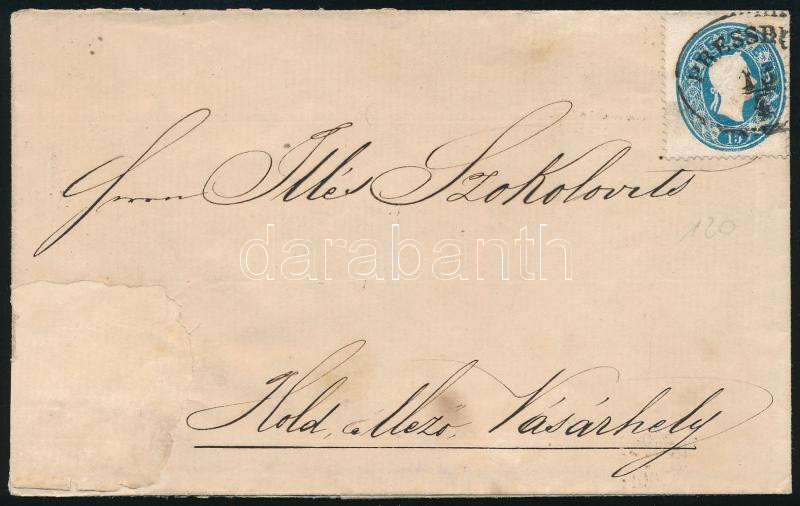 PRESSBU
15
4
15
Herrn Illés Szokolovits
120
darabanth
Hold, Mező, Vásárhely